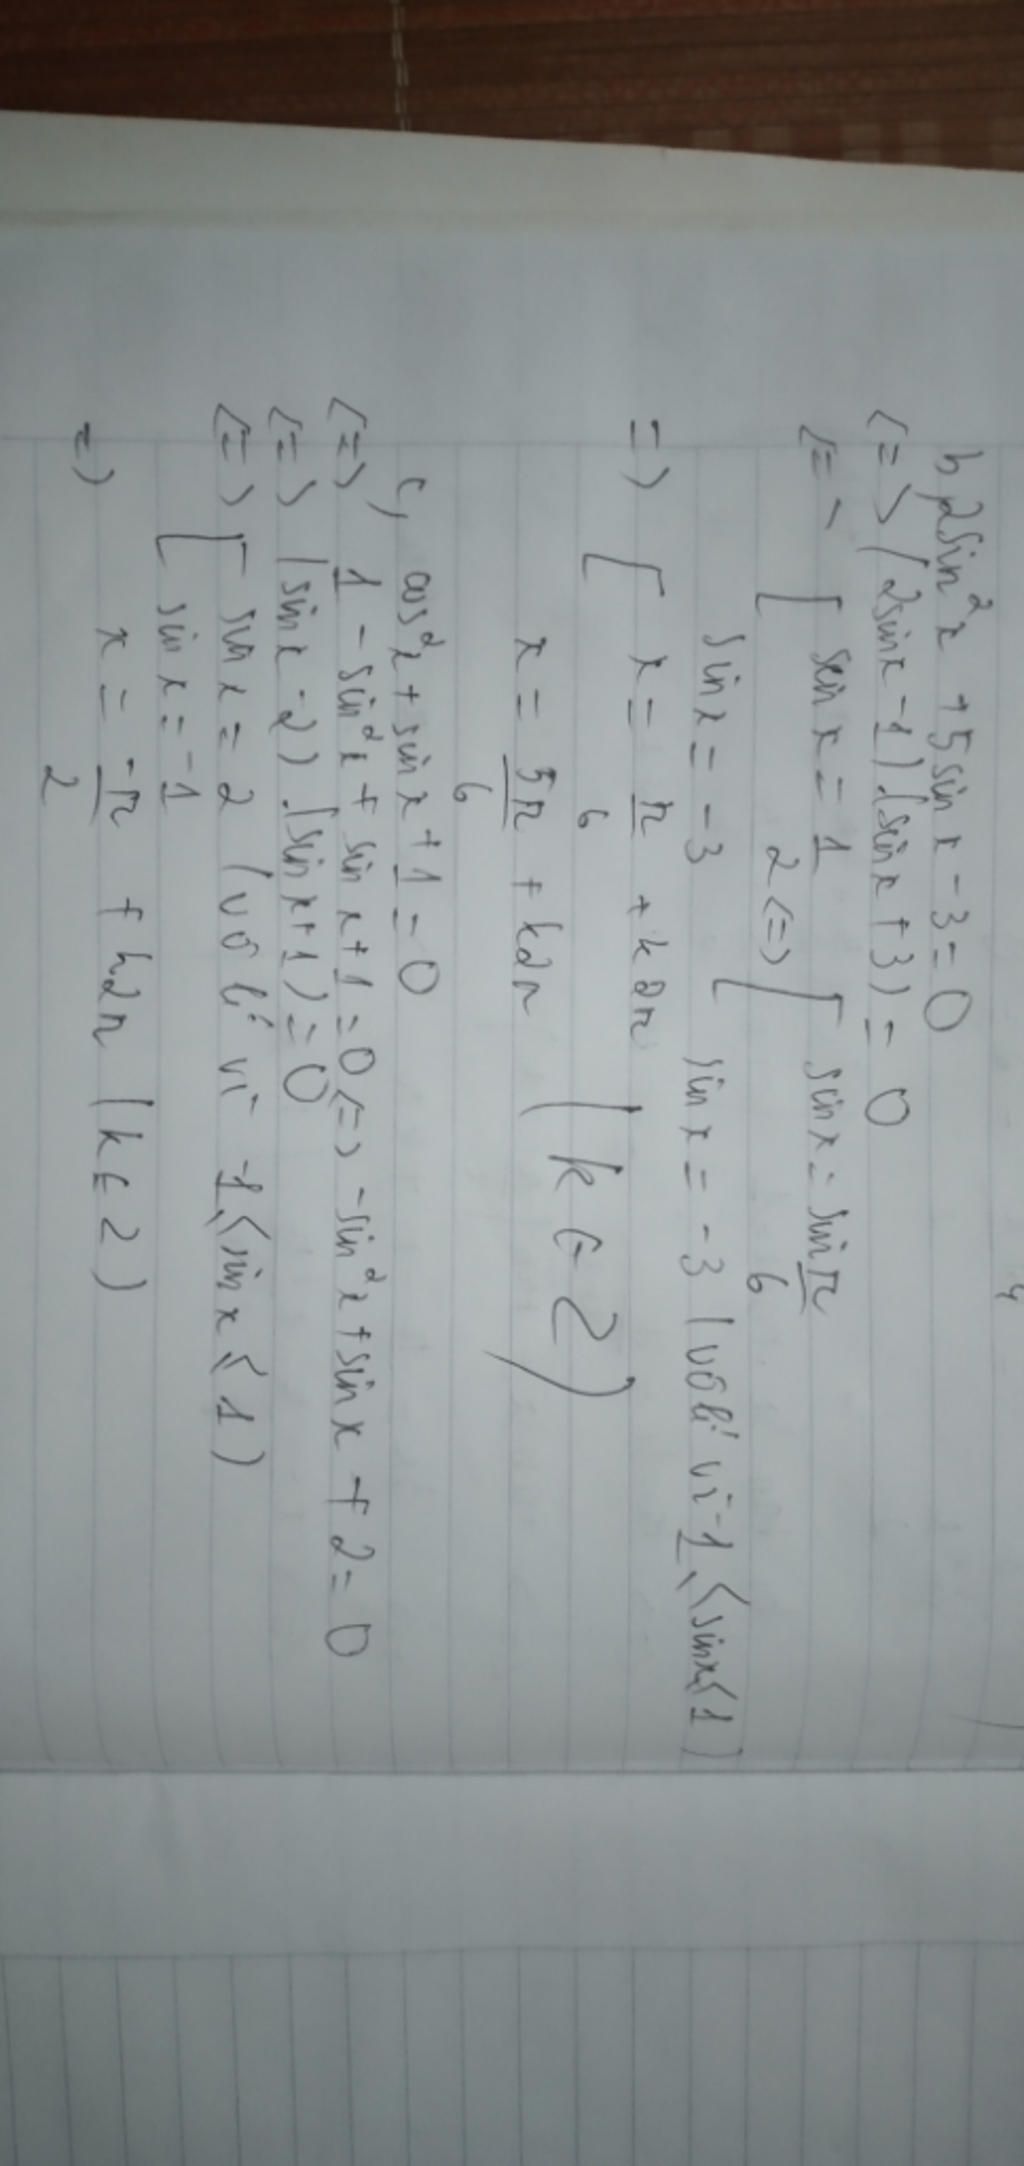 4
b, 2sin²x + 5sin x - 3 = 0
<=> (2sin x - 1).(sin x + 3) = 0
<=> [ sin x = 1/2 <=> [ sin x = sin π/6
sin x = -3 [ sin x = -3 (vô lí vì -1 ≤ sin x ≤ 1)
=> [ x = π/6 + k2π
x = 5π/6 + k2π (k ∈ Z)
c, cos²x + sin x + 1 = 0
<=> 1 - sin²x + sin x + 1 = 0 <=> -sin²x + sin x + 2 = 0
<=> (sin x - 2).(sin x + 1) = 0
<=> [ sin x = 2 (vô lí vì -1 ≤ sin x ≤ 1)
[ sin x = -1
=> x = -π/2 + k2π (k ∈ Z)